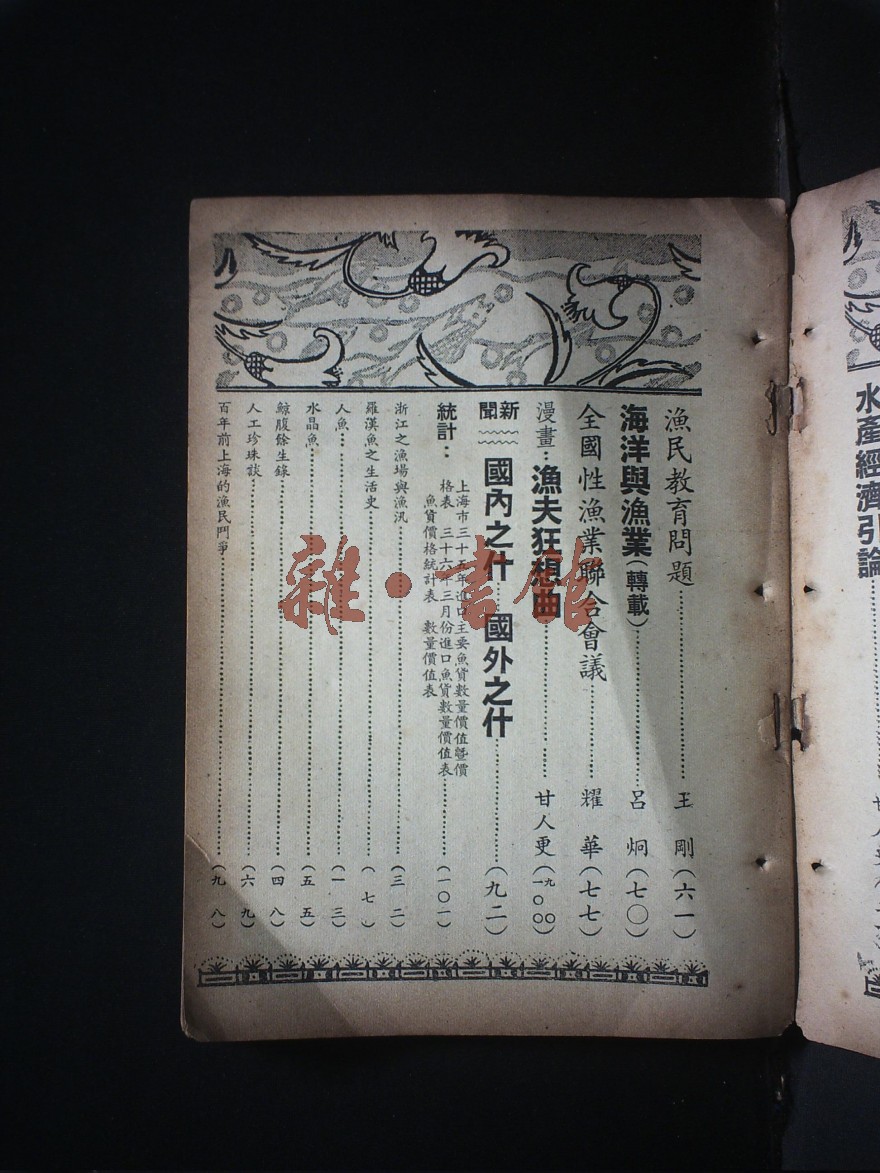 水產經濟引論
漁民教育問題 王剛（六一）
海洋與漁業（轉載） 呂炯（七〇）
全國性漁業聯合會議 耀華（七七）
漫畫：漁夫狂想曲 甘人更（九一〇〇）
新聞 國內之什 國外之什 （九二）
統計：
上海市三十五年進口主要魚貨數量價值暨價
格表 三十六年三月份進口魚貨數量價值表
魚貨價格統計表 數量價值表 （一〇一）
浙江之漁場與漁汛 （三二）
羅漢魚之生活史 （七）
人魚 （一三）
水晶魚 （五五）
鯨腹餘生錄 （四八）
人工珍珠談 （六九）
百年前上海的漁民鬥爭 （九八）
雜·書館